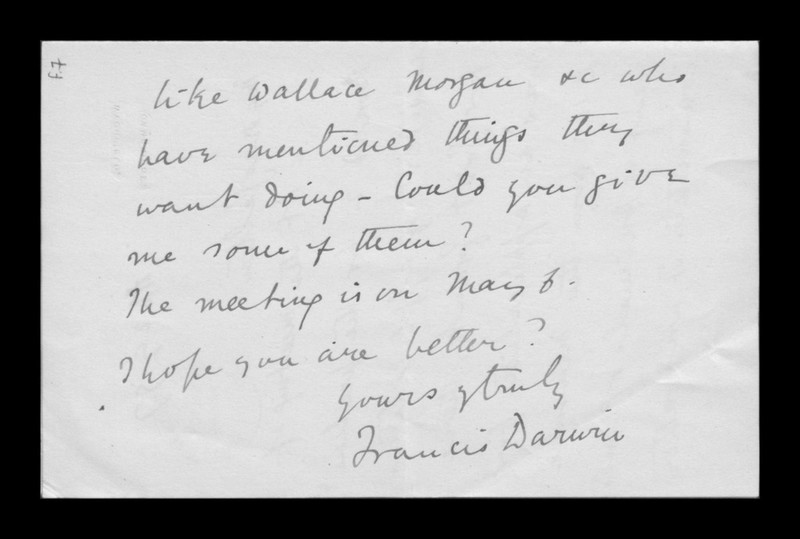 f.7
like Wallace Morgan &c who
have mentioned things they
want doing – Could you give
me some of them?
The meeting is on May 6.
I hope you are better?
Yours truly
Francis Darwin